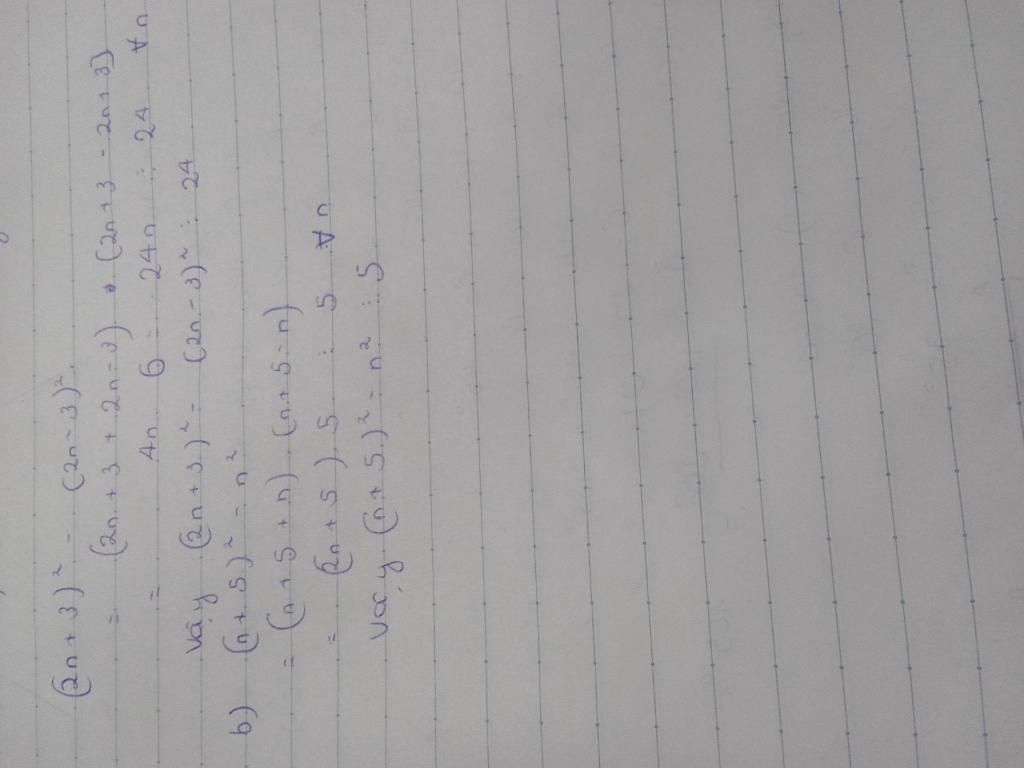 (2n + 3)² - (2n - 3)².
= (2n + 3 + 2n - 3) . (2n + 3 - 2n + 3)
= 4n . 6 = 24n ⋮ 24 ∀ n
Vậy (2n + 3)² - (2n - 3)² ⋮ 24
b) (n + 5)² - n²
= (n + 5 + n) . (n + 5 - n)
= (2n + 5) . 5 ⋮ 5 ∀ n
Vậy (n + 5)² - n² ⋮ 5